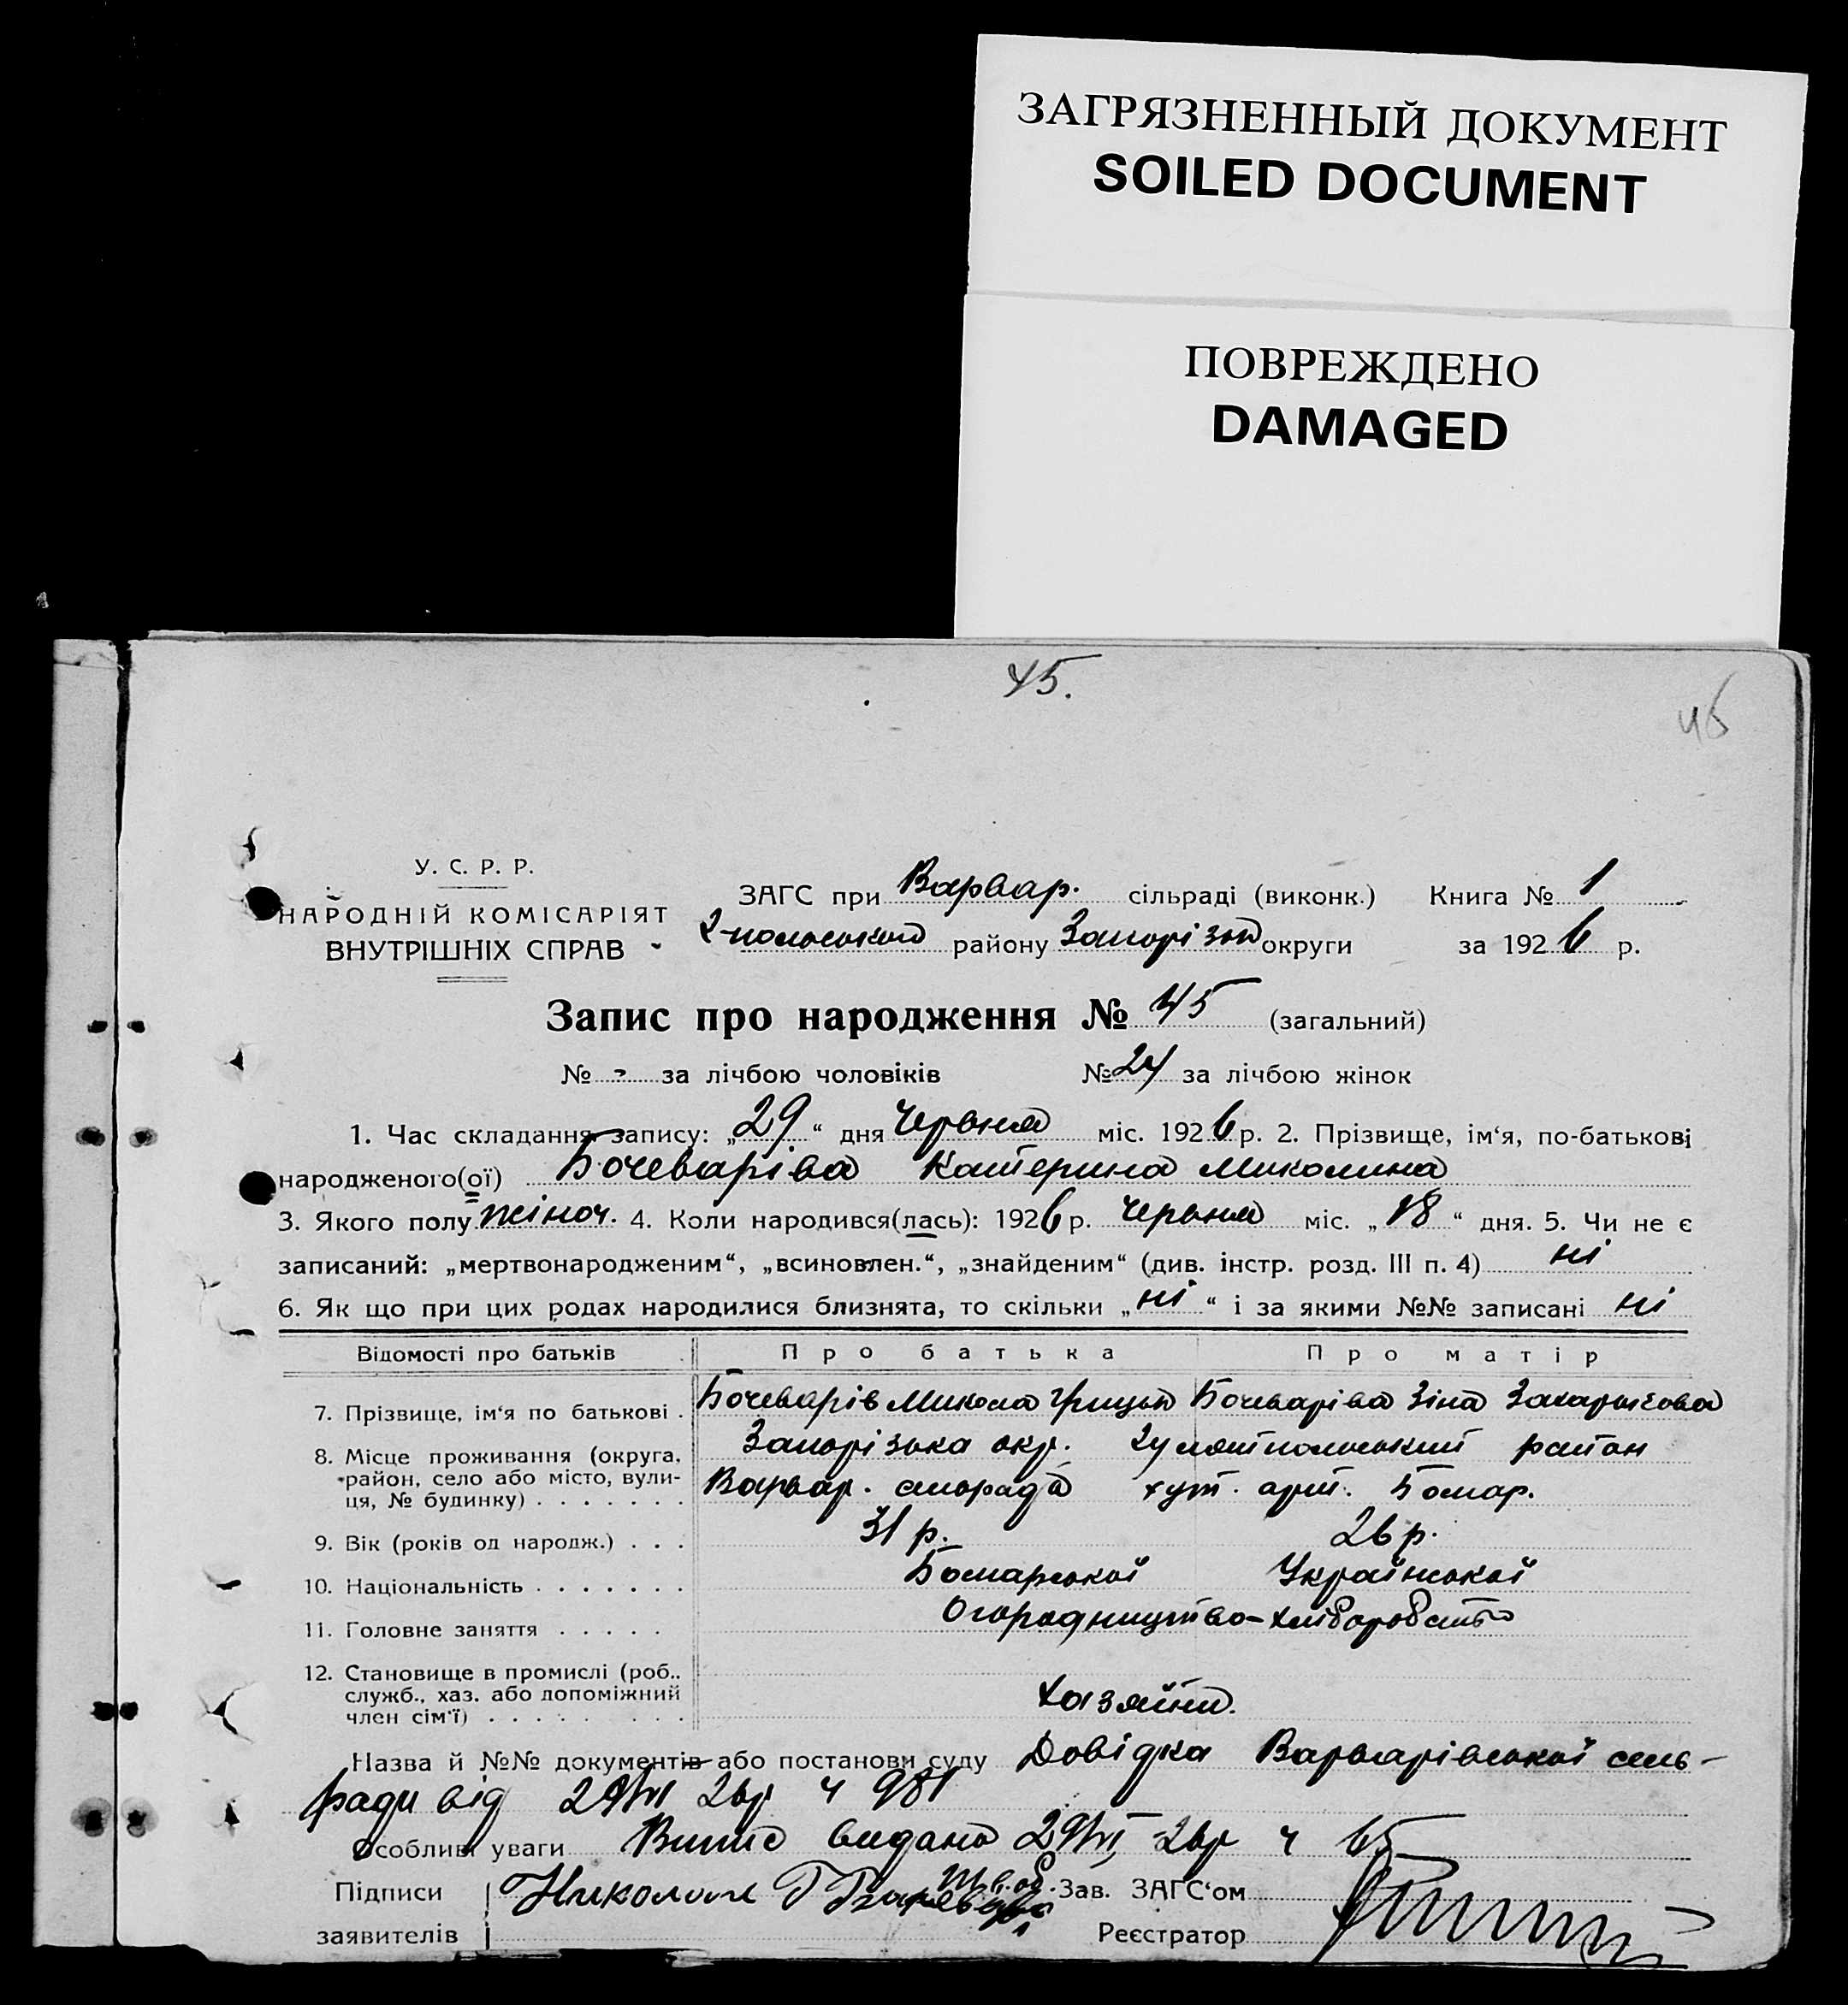 ЗАГРЯЗНЕННЫЙ ДОКУМЕНТ
SOILED DOCUMENT
ПОВРЕЖДЕНО
DAMAGED
45.
45
У. С. Р. Р.
НАРОДНІЙ КОМІСАРІЯТ
ВНУТРІШНІХ СПРАВ
ЗАГС при Варвар. сільраді (виконк.) Книга № 1
району Запорізьк округи за 1926 р.
Запис про народження № 45 (загальний)
№ - за лічбою чоловіків № 24 за лічбою жінок
1. Час складання запису: „29“ дня Червня міс. 1926 р. 2. Прізвище, ім‘я, по-батькові
народженого(ої) Бочеваріва Катерина Миколина
3. Якого полу жіноч. 4. Коли народився(лась): 1926 р. Червня міс. „18“ дня. 5. Чи не є
записаний: „мертвонародженим“, „всиновлен.“, „знайденим“ (див. інстр. розд. III п. 4) ні
6. Як що при цих родах народилися близнята, то скільки „ні“ і за якими №№ записані ні
Відомості про батьків Про батька Про матір
7. Прізвище, ім‘я по батькові . Бочеварів Микола Грицьк Бочеваріва Зіна
8. Місце проживання (округа, район, село або місто, вулиця, № будинку) . . . . . . . Запорізька окр. Гуляйпольський район
Варвар. сльрада хут. арт. Болгар.
9. Вік (років од народж.) . . . 31 р. 26 р.
10. Національність . . . . . . . Болгарської Української
11. Головне заняття . . . . . Огородництво-хліборобство
12. Становище в промислі (роб., служб., хаз. або допоміжний член сім‘ї) . . . . . . . . Хазяїни.
Назва й №№ документів або постанови суду Довідка Варварівської сель-
ради від 29/VI 26р ч 981
Особливі уваги Випис видано 29/VI 26р ч 65
Підписи Николай Г Зав. ЗАГС‘ом
заявителів Реєстратор